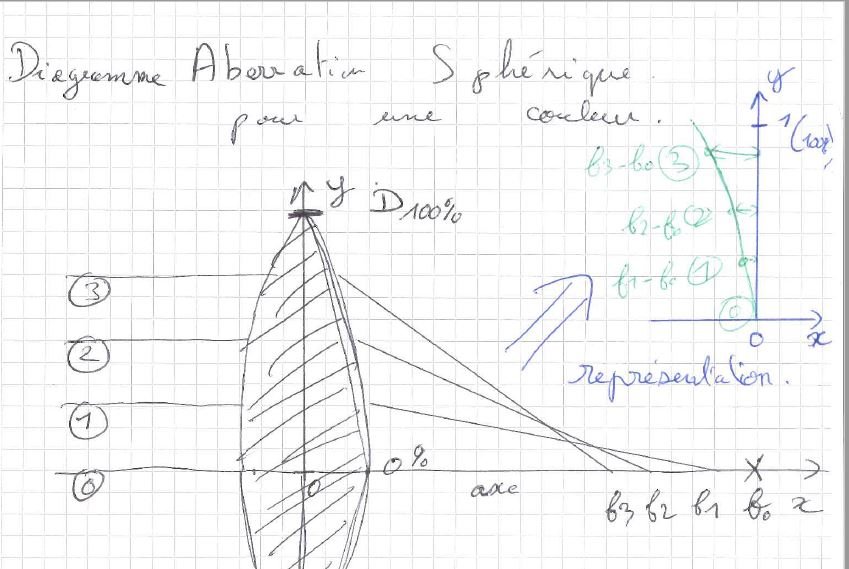 Diagramme Aberration Sphérique.
pour une couleur.
y
1 (100%)
b3-b0 (3)
b2-b0 (2)
b1-b0 (1)
0
0
x
représentation.
y D100%
3
2
1
0
0
0%
axe
b3 b2 b1 b0 x